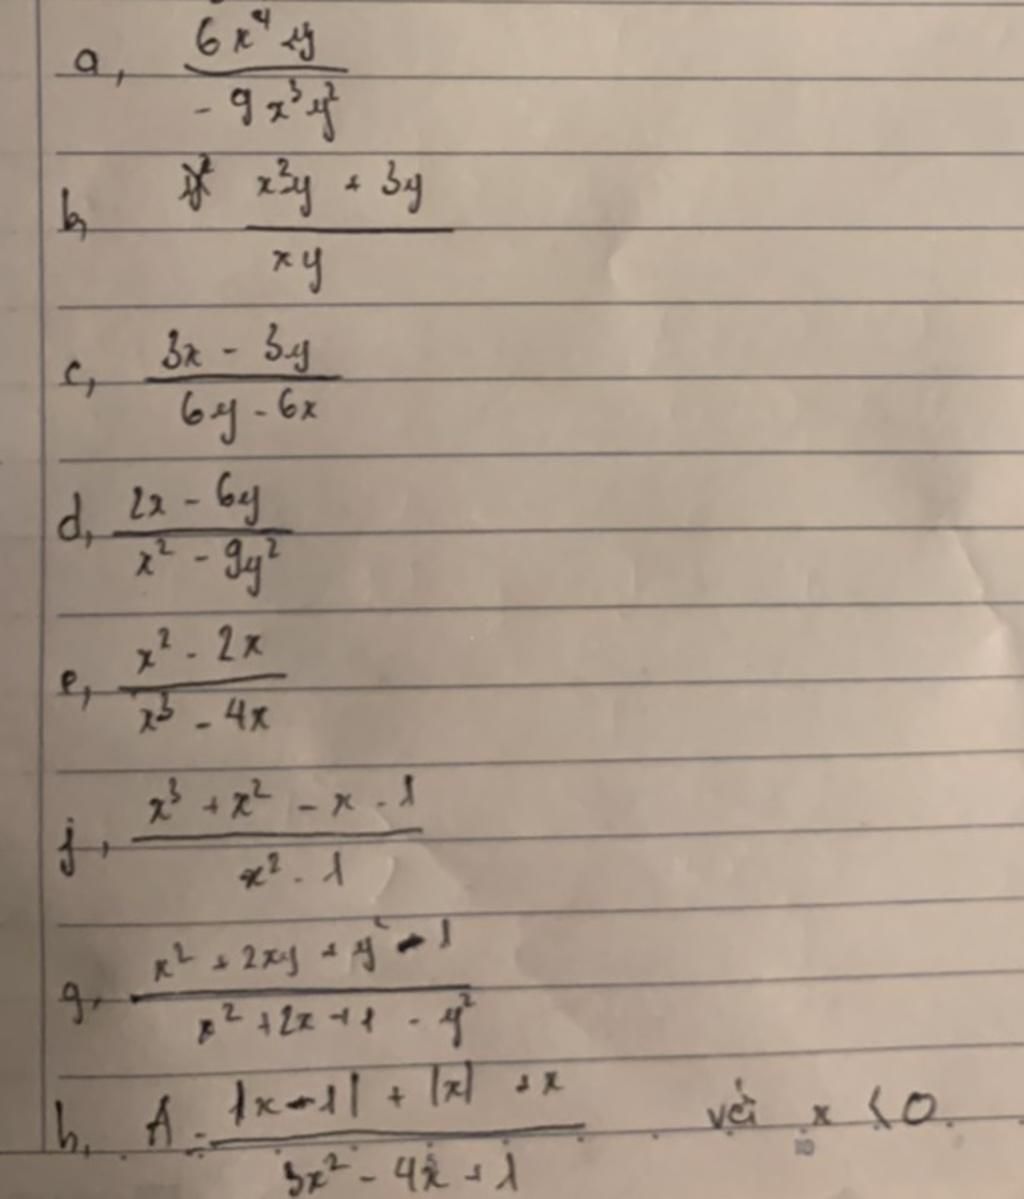 a, \frac{6x^4y}{-9x^3y^2}
b, \frac{x^2y + 3y}{xy}
c, \frac{3x - 3y}{6y - 6x}
d, \frac{2x - 6y}{x^2 - 9y^2}
e, \frac{x^2 - 2x}{x^3 - 4x}
f, \frac{x^3 + x^2 - x - 1}{x^2 - 1}
g, \frac{x^2 + 2xy + y^2 - 1}{x^2 + 2x + 1 - y^2}
h, A = \frac{|x - 1| + |x| + x}{3x^2 - 4x + 1} với x < 0